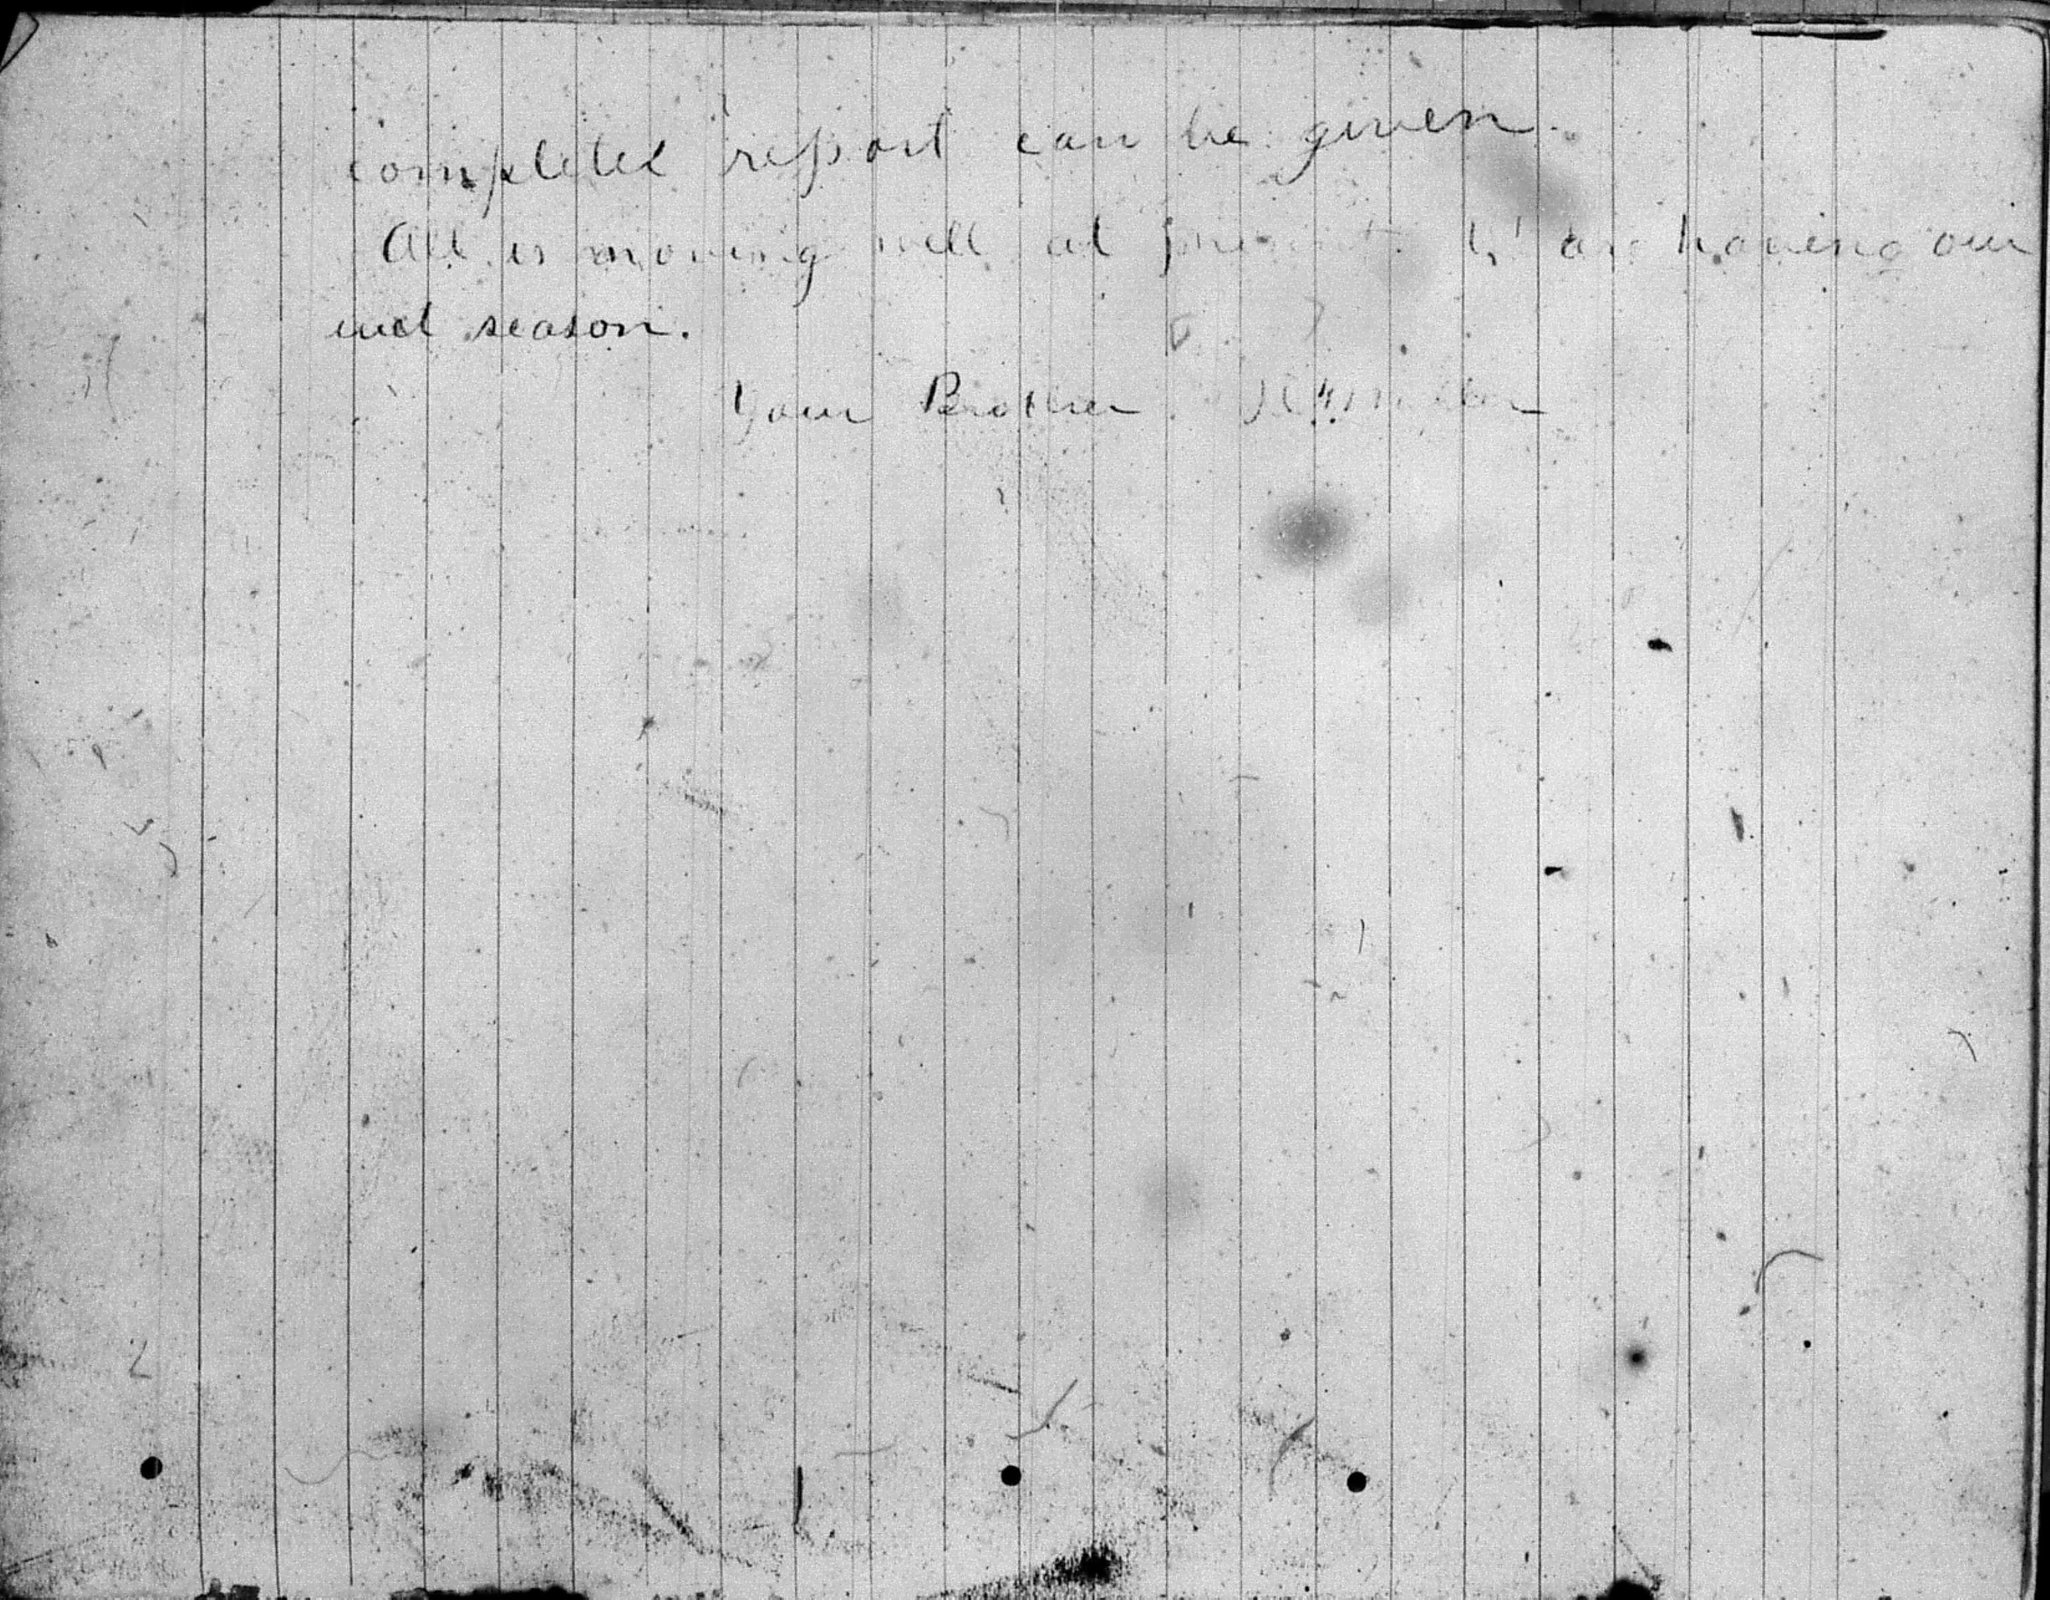 completed report can be given.
All is moving well at present. We are having our
wet season.
Your Brother Miller